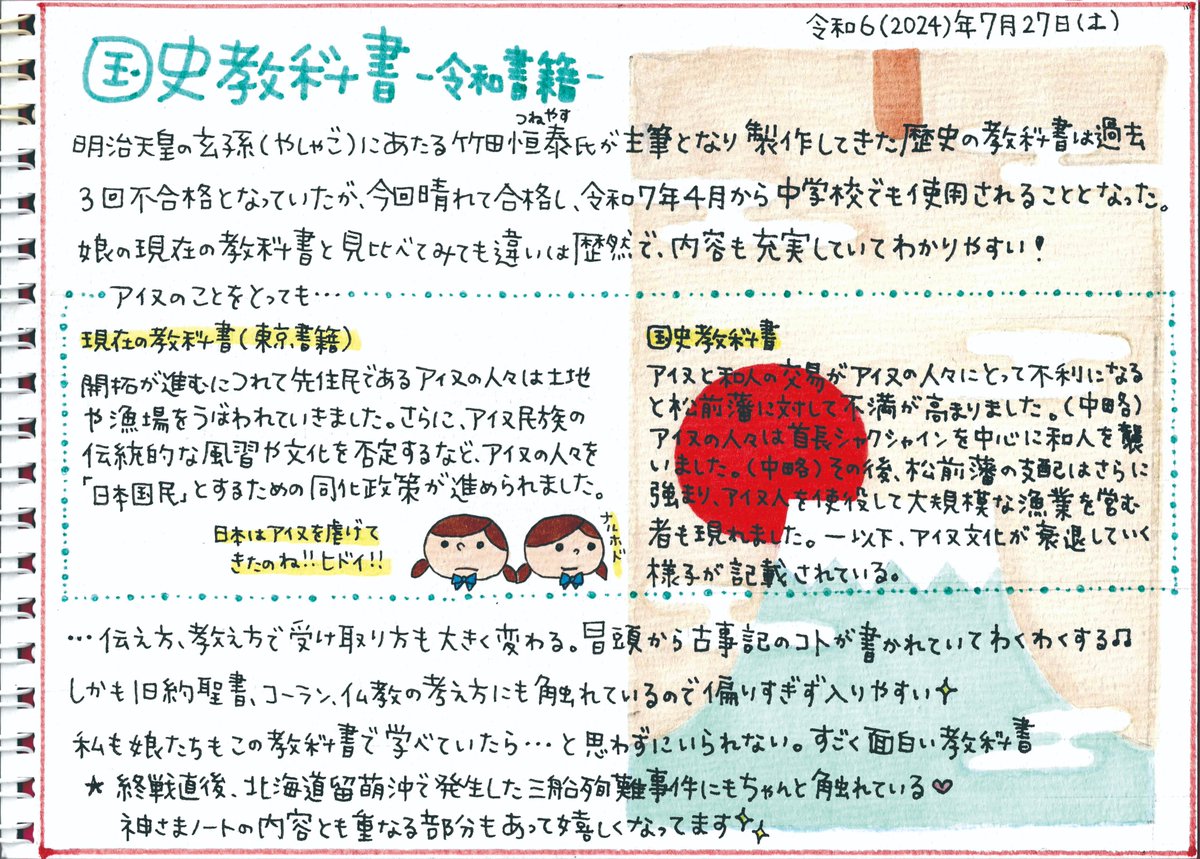 令和6(2024)年7月27日(土)
国史教科書-令和書籍-
つねやす
明治天皇の玄孫(やしゃご)にあたる竹田恒泰氏が主筆となり製作してきた歴史の教科書は過去
3回不合格となっていたが、今回晴れて合格し、令和7年4月から中学校でも使用されることとなった。
娘の現在の教科書と見比べてみても違いは歴然で、内容も充実していてわかりやすい!
…アイヌのことをとっても…
現在の教科書(東京書籍)
開拓が進むにつれて先住民であるアイヌの人々は土地
や漁場をうばわれていきました。さらに、アイヌ民族の
伝統的な風習や文化を否定するなど、アイヌの人々を
「日本国民」とするための同化政策が進められました。
日本はアイヌを虐げて
きたのね!!ヒドイ!!
ナルホド
国史教科書
アイヌと和人の交易がアイヌの人々にとって不利になる
と松前藩に対して不満が高まりました。(中略)
アイヌの人々は首長シャクシャインを中心に和人を襲
いました。(中略)その後、松前藩の支配はさらに
強まり、アイヌ人を使役して大規模な漁業を営む
者も現れました。―以下、アイヌ文化が衰退していく
様子が記載されている。
…伝え方、教え方で受け取り方も大きく変わる。冒頭から古事記のコトが書かれていてわくわくする♫
しかも旧約聖書、コーラン、仏教の考え方にも触れているので偏りすぎず入りやすい✧
私も娘たちもこの教科書で学べていたら…と思わずにいられない。すごく面白い教科書
★終戦直後、北海道留萌沖で発生した三船殉難事件にもちゃんと触れている♡
神さまノートの内容とも重なる部分もあって嬉しくなってます✧✧